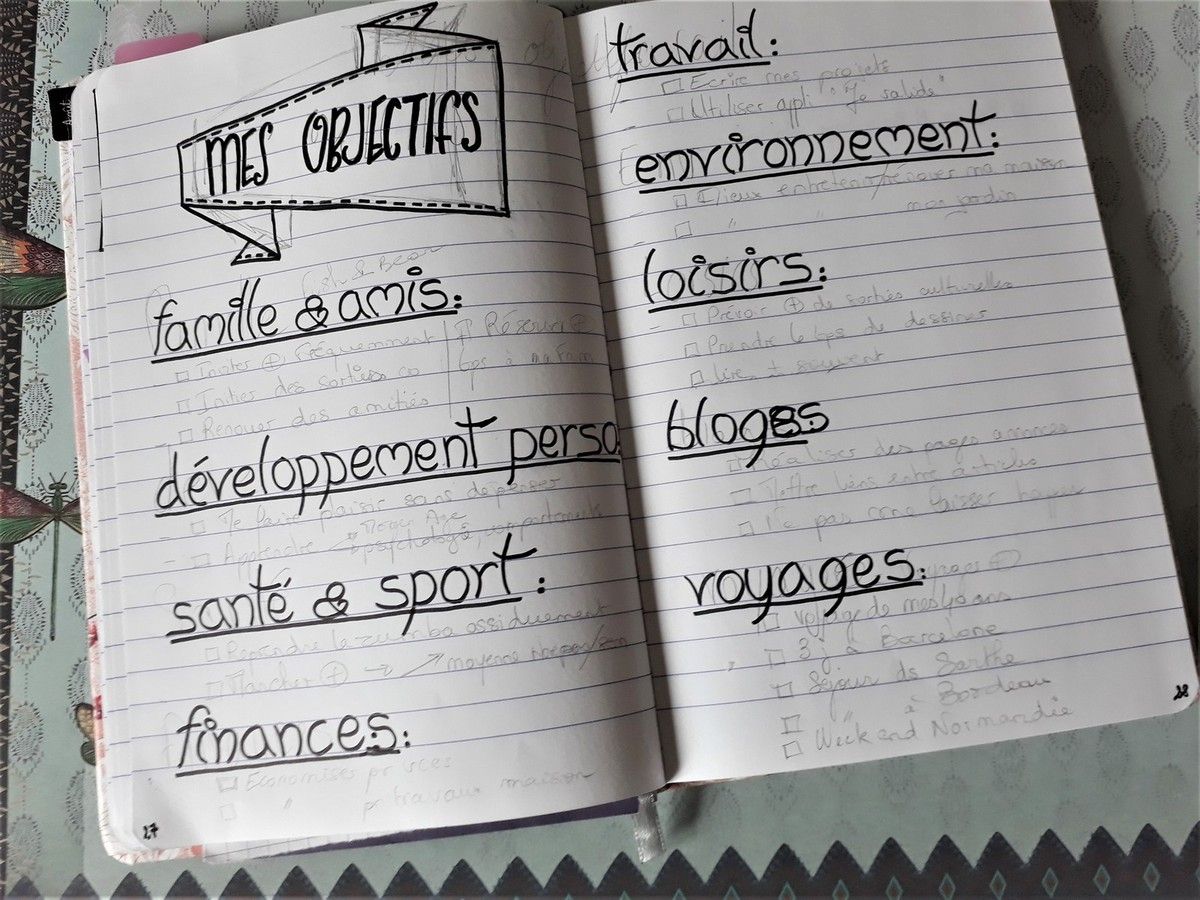 MES OBJECTIFS
famille & amis:
□ Inviter ⊕ fréquemment
□ Initier des sorties co
□ Renouer des amitiés
□ Réserver ⊕
tps à ma fam
développement perso:
□ Me faire plaisir sans dépenser
□ Apprendre → psychologie, comportements
santé & sport:
□ Reprendre la zumba assidument
□ Marcher ⊕ → ↗ moyenne
finances:
□ Economiser pr vces
□ " pr travaux maison
27
travail:
□ Ecrire mes projets
□ Utiliser appli "Je valide"
environnement:
□ Mieux entretenir/rénover ma maison
□ " " mon jardin
loisirs:
□ Prévoir ⊕ de sorties culturelles
□ Prendre le tps de dessiner
□ Lire + souvent
blogs
□ Réaliser des pages annonces
□ Mettre liens entre articles
□ Ne pas me laisser
voyages:
□ Voyage de mes 40 ans
□ 3 j. à Barcelone
□ Séjour ds Sarthe
□ " à Bordeaux
□ Week end Normandie
28